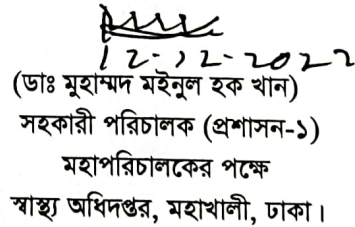 12-12-2022
(ডাঃ মুহাম্মদ মইনুল হক খান)
সহকারী পরিচালক (প্রশাসন-১)
মহাপরিচালকের পক্ষে
স্বাস্থ্য অধিদপ্তর, মহাখালী, ঢাকা।